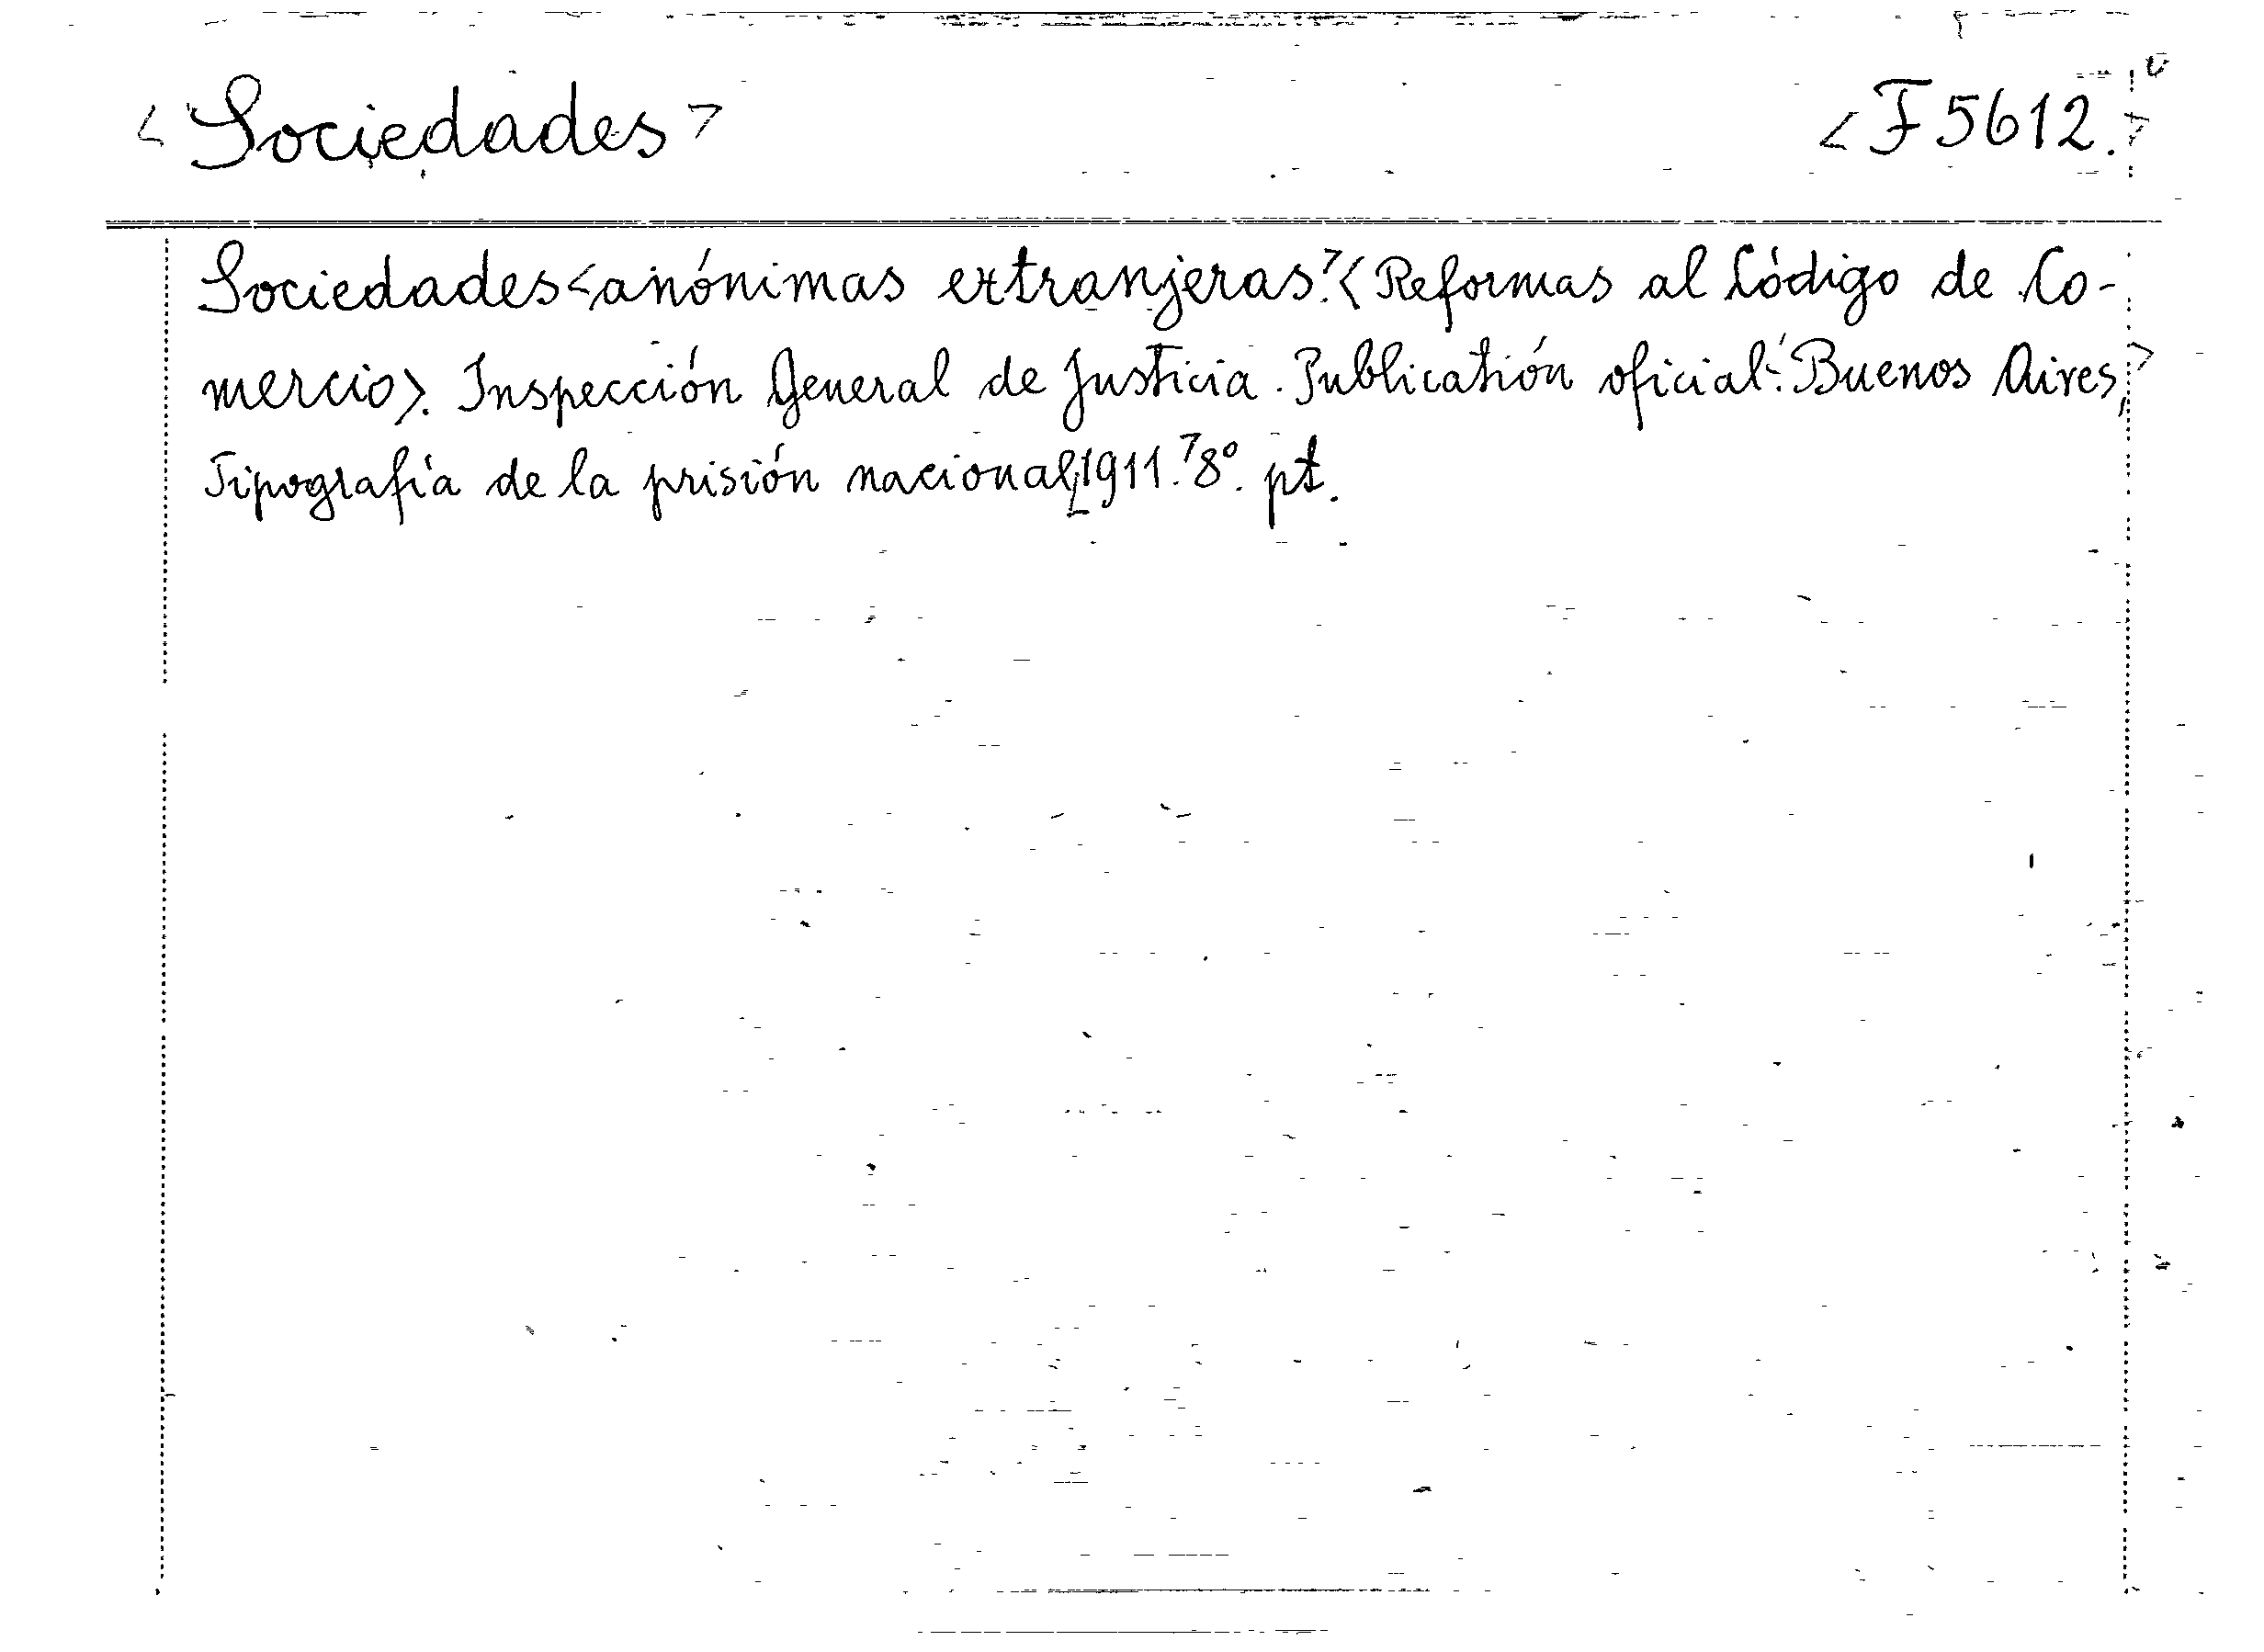 Sociedades F 5612.
Sociedades anónimas extranjeras. (Reformas al Código de Co-
mercio). Inspección General de Justicia. Publicatión oficial. Buenos Aires,
Tipografía de la prisión nacional, 1911. 8º. pt.